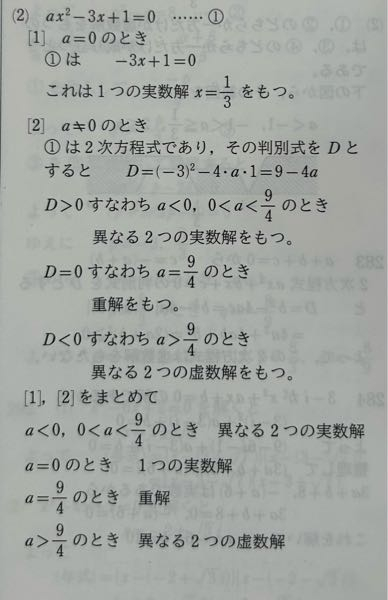 (2) ax²−3x+1=0 ……①
[1] a=0のとき
①は −3x+1=0
これは1つの実数解 x=1/3 をもつ。
[2] a≠0のとき
①は2次方程式であり，その判別式をDと
すると D=(−3)²−4・a・1=9−4a
D>0 すなわち a<0，0<a<9/4 のとき
異なる2つの実数解をもつ。
D=0 すなわち a=9/4 のとき
重解をもつ。
D<0 すなわち a>9/4 のとき
異なる2つの虚数解をもつ。
[1]，[2]をまとめて
a<0，0<a<9/4 のとき 異なる2つの実数解
a=0のとき 1つの実数解
a=9/4 のとき 重解
a>9/4 のとき 異なる2つの虚数解